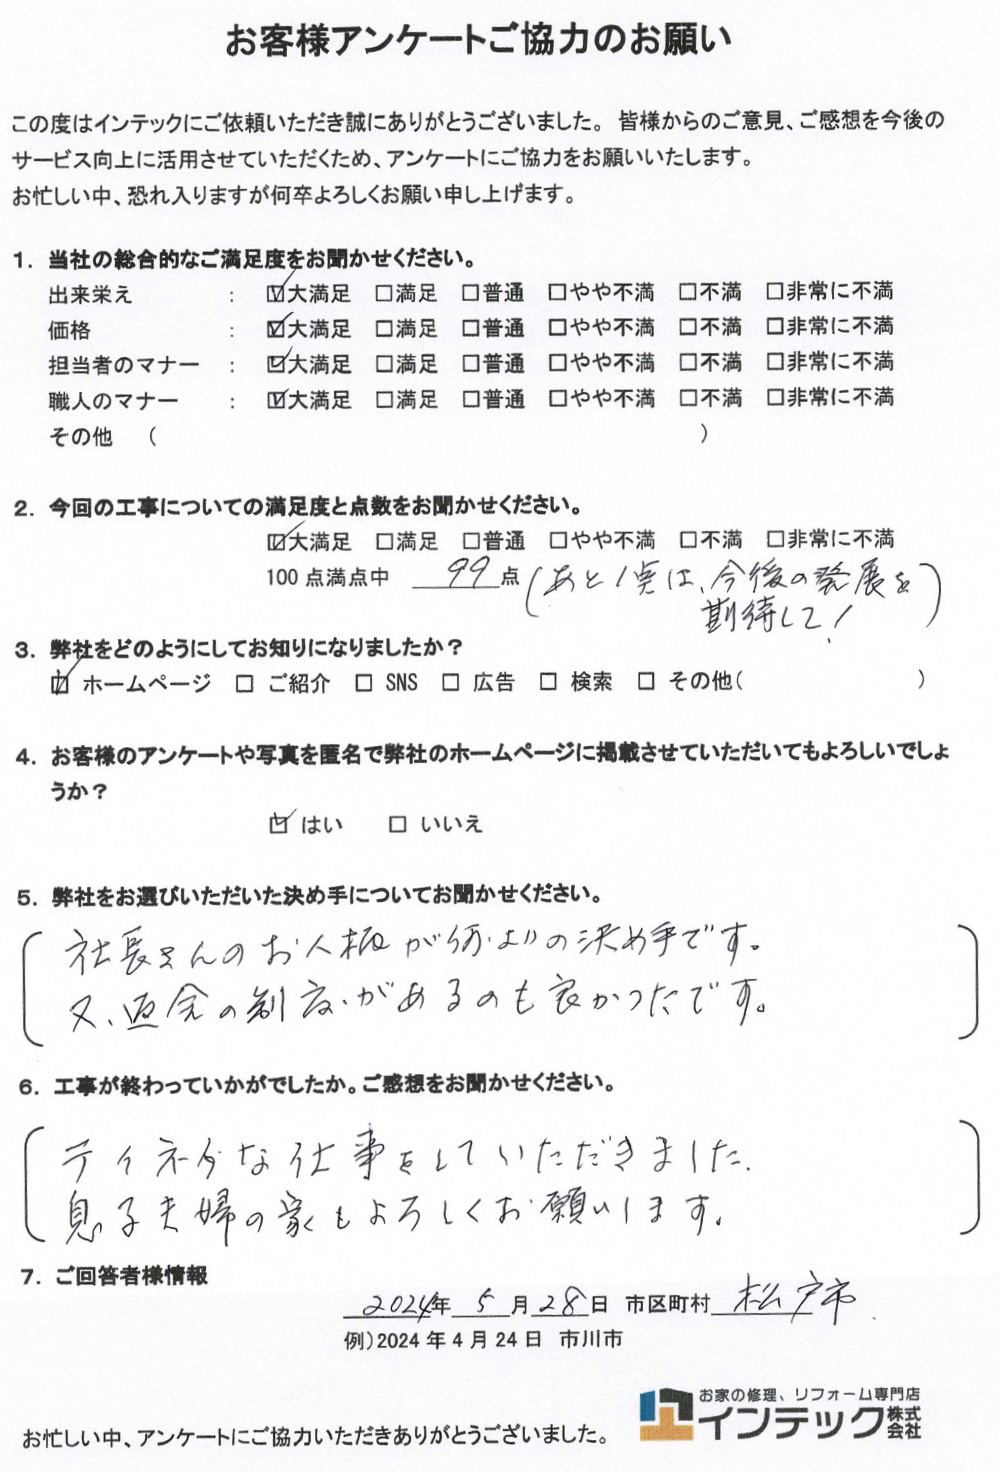 お客様アンケートご協力のお願い
この度はインテックにご依頼いただき誠にありがとうございました。 皆様からのご意見、ご感想を今後の
サービス向上に活用させていただくため、アンケートにご協力をお願いいたします。
お忙しい中、恐れ入りますが何卒よろしくお願い申し上げます。
1. 当社の総合的なご満足度をお聞かせください。
出来栄え : ☑大満足 □満足 □普通 □やや不満 □不満 □非常に不満
価格 : ☑大満足 □満足 □普通 □やや不満 □不満 □非常に不満
担当者のマナー : ☑大満足 □満足 □普通 □やや不満 □不満 □非常に不満
職人のマナー : ☑大満足 □満足 □普通 □やや不満 □不満 □非常に不満
その他 ( )
2. 今回の工事についての満足度と点数をお聞かせください。
☑大満足 □満足 □普通 □やや不満 □不満 □非常に不満
100点満点中 99点 (あと1点は、今後の発展を
期待して!)
3. 弊社をどのようにしてお知りになりましたか?
☑ ホームページ □ ご紹介 □ SNS □ 広告 □ 検索 □ その他( )
4. お客様のアンケートや写真を匿名で弊社のホームページに掲載させていただいてもよろしいでしょ
うか?
☑ はい □ いいえ
5. 弊社をお選びいただいた決め手についてお聞かせください。
社長さんのお人柄が何よりの決め手です。
又、返金の制度があるのも良かったです。
6. 工事が終わっていかがでしたか。ご感想をお聞かせください。
テイネイな仕事をしていただきました。
息子夫婦の家もよろしくお願いします。
7. ご回答者様情報
2024年 5月28日 市区町村 松戸市
例)2024年4月24日 市川市
お家の修理、リフォーム専門店
インテック株式会社
お忙しい中、アンケートにご協力いただきありがとうございました。